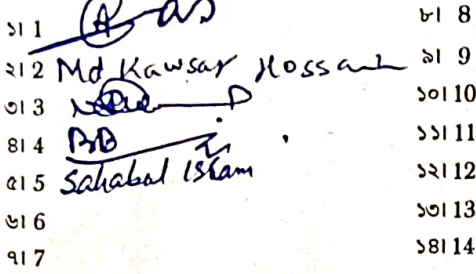 ১। 1
২। 2 Md Kawsar Hossain
৩। 3
৪। 4 BB
৫। 5 Sahabal Islam
৬। 6
৭। 7
৮। 8
৯। 9
১০। 10
১১। 11
১২। 12
১৩। 13
১৪। 14